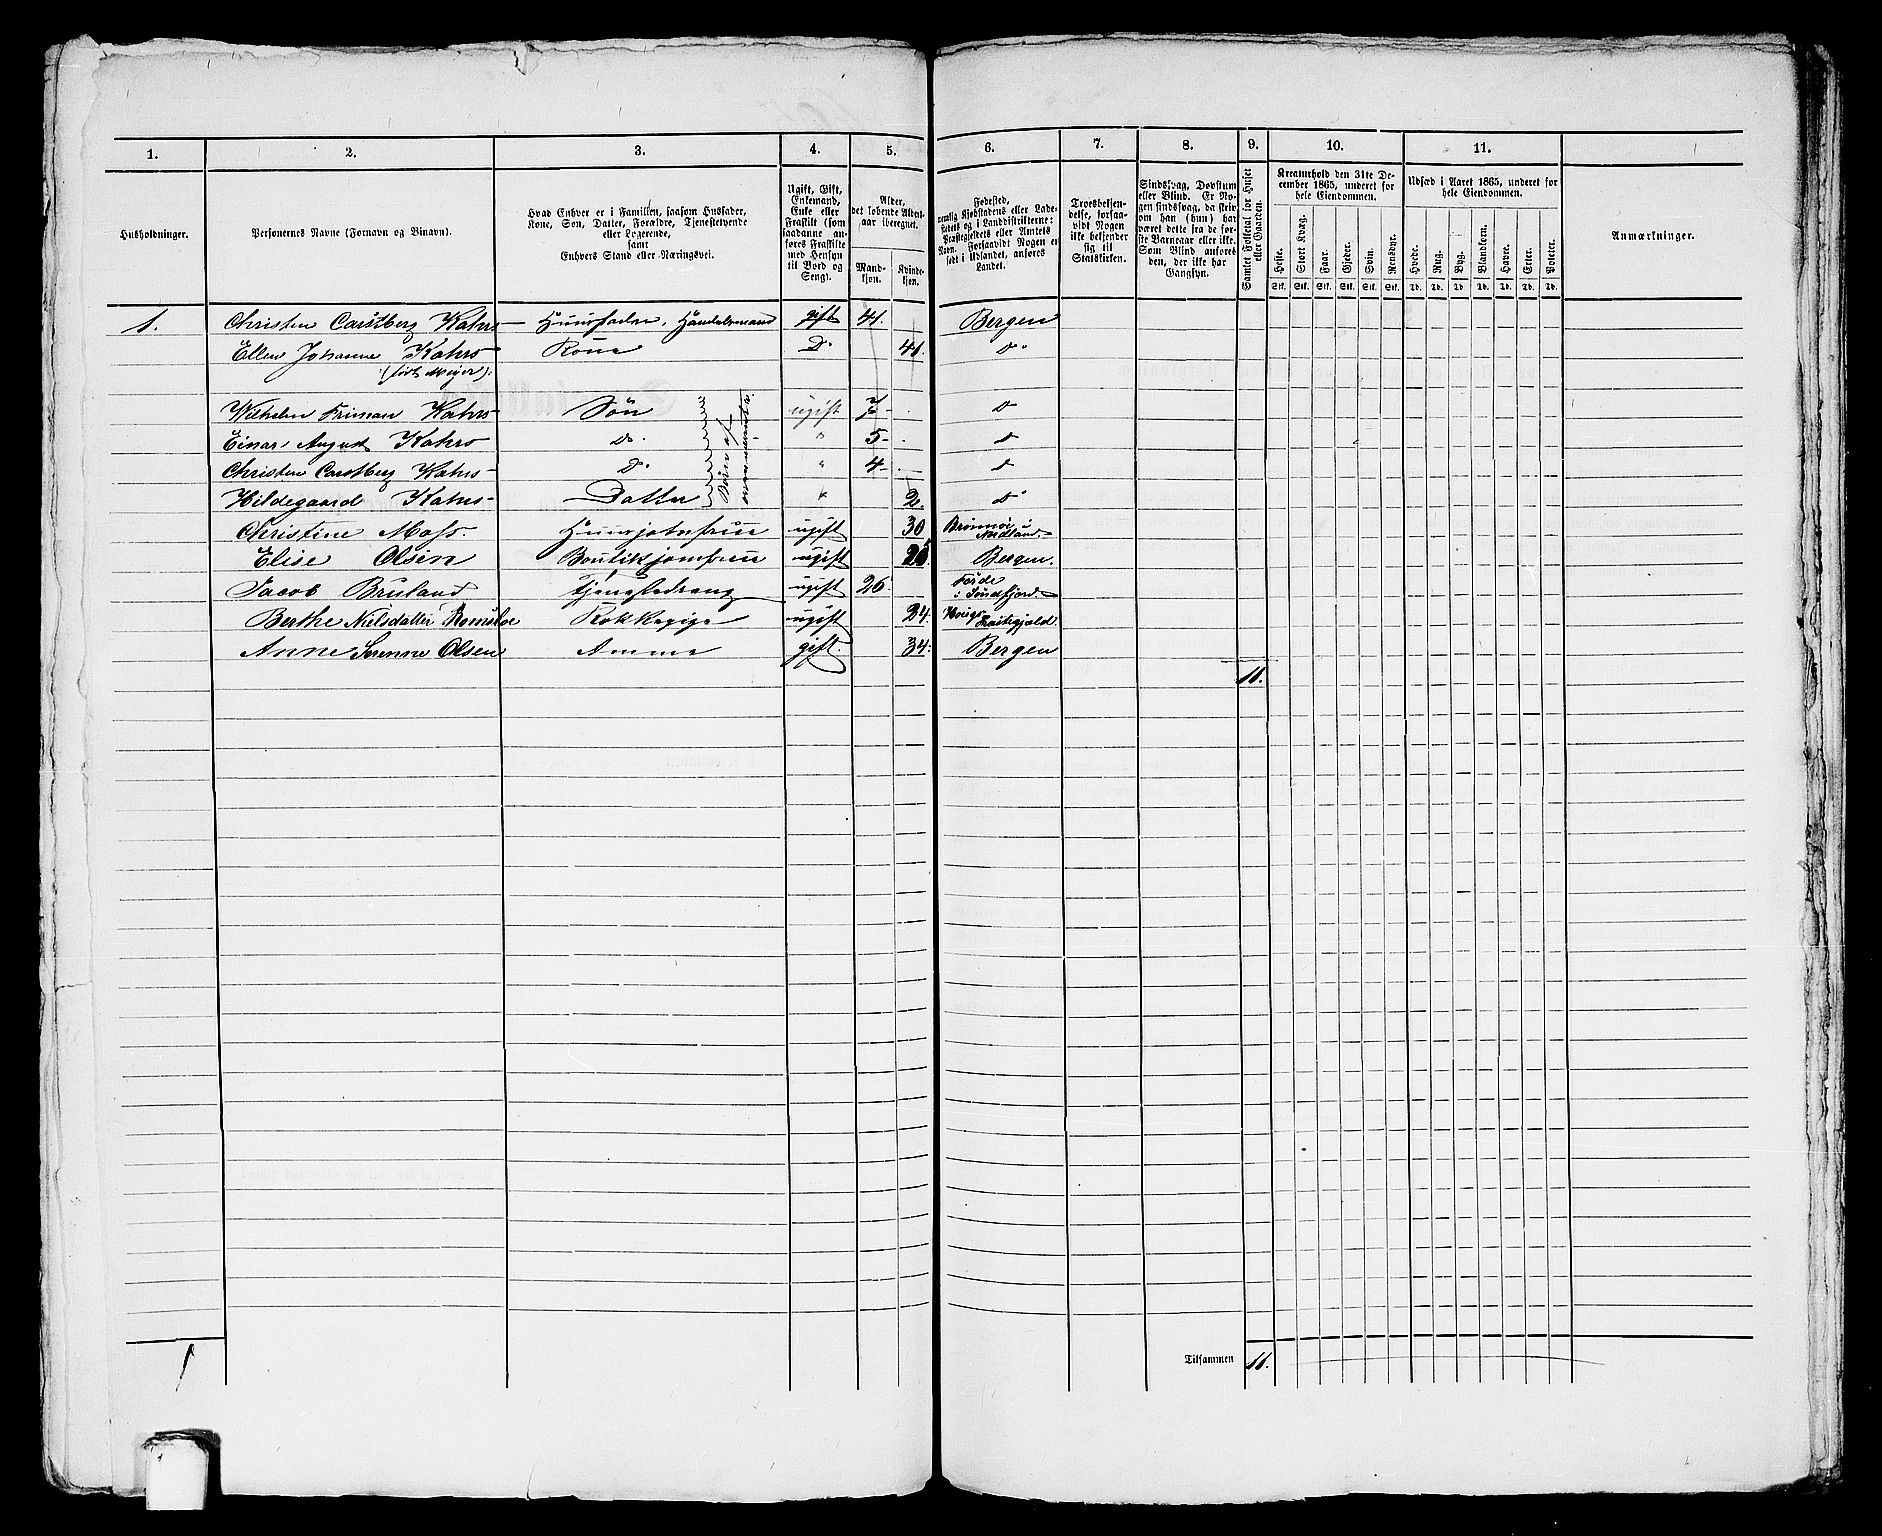 1. 2. 3. 4. 5. 6. 7. 8. 9. 10. 11.
Husholdninger.
Personernes Navne (Fornavn og Binavn).
Hvad Enhver er i Familien, saasom Husfader,
Kone, Søn, Datter, Forældre, Tjenestetyende
eller Logerende,
samt
Enhvers Stand eller Næringsvei.
Ugift, Gift,
Enkemand,
Enke eller
Fraskilt (som
saadanne an-
føres Fraskilte
med Hensyn
til Bord og
Seng).
Alder,
det løbende Alders-
aar iberegnet.
Mand-
kjøn.
Kvinde-
kjøn.
Fødested,
nemlig Kjøbstadens eller Lade-
stedets og i Landdistrikterne:
Præstegjeldets eller Amtets
Navn. Forsaavidt Nogen er
født i Udlandet, anføres
Landet.
Troesbekjen-
delse, forsaa-
vidt Nogen
ikke bekjender
sig til
Statskirken.
Sindssvag, Døvstum
eller Blind. Er No-
gen sindssvag, da skri-
ves om han (hun) har
været dette fra de før-
ste Barneaar eller ikke.
Som Blind anføres
den, der ikke har
Gangsyn.
Samlet Folketal for Huset
eller Gaarden.
Kreaturhold den 31te De-
cember 1865, underet for
hele Eiendommen.
Heste. Stort Kvæg. Faar. Gjeder. Svin. Rensdyr.
Stk. Stk. Stk. Stk. Stk. Stk.
Udsæd i Aaret 1865, underet for
hele Eiendommen.
Hvede. Rug. Byg. Blandkorn. Havre. Erter. Poteter.
Td. Td. Td. Td. Td. Td. Td.
Anmærkninger.
1. Christen Carstberg Kahrs Huusfader, Handelsmand gift 41. Bergen
Ellen Johanne Kahrs Kone Do 41. Do
(født Meijer).
Wilhelm Friman Kahrs Søn ugift 7 Do
Einar August Kahrs do. " 5 Do
Christen Carstberg Kahrs Do " 4 Do
Hildegaard Kahrs Datter " 2. Do
Børn af
Christine Moss. Huusjomfrue ugift 30 Brønnø i Nordland
Elise Olsen Boutikjomfrue ugift Bergen.
Jacob Bruland Tjenestedreng ugift 26 Førde i Søndfjord
Berthe Nielsdatter Romsloe Kokkepige ugift 24.
Anne Serenne Olsen Amme gift. 34. Bergen
11.
1 Tilsammen 11.